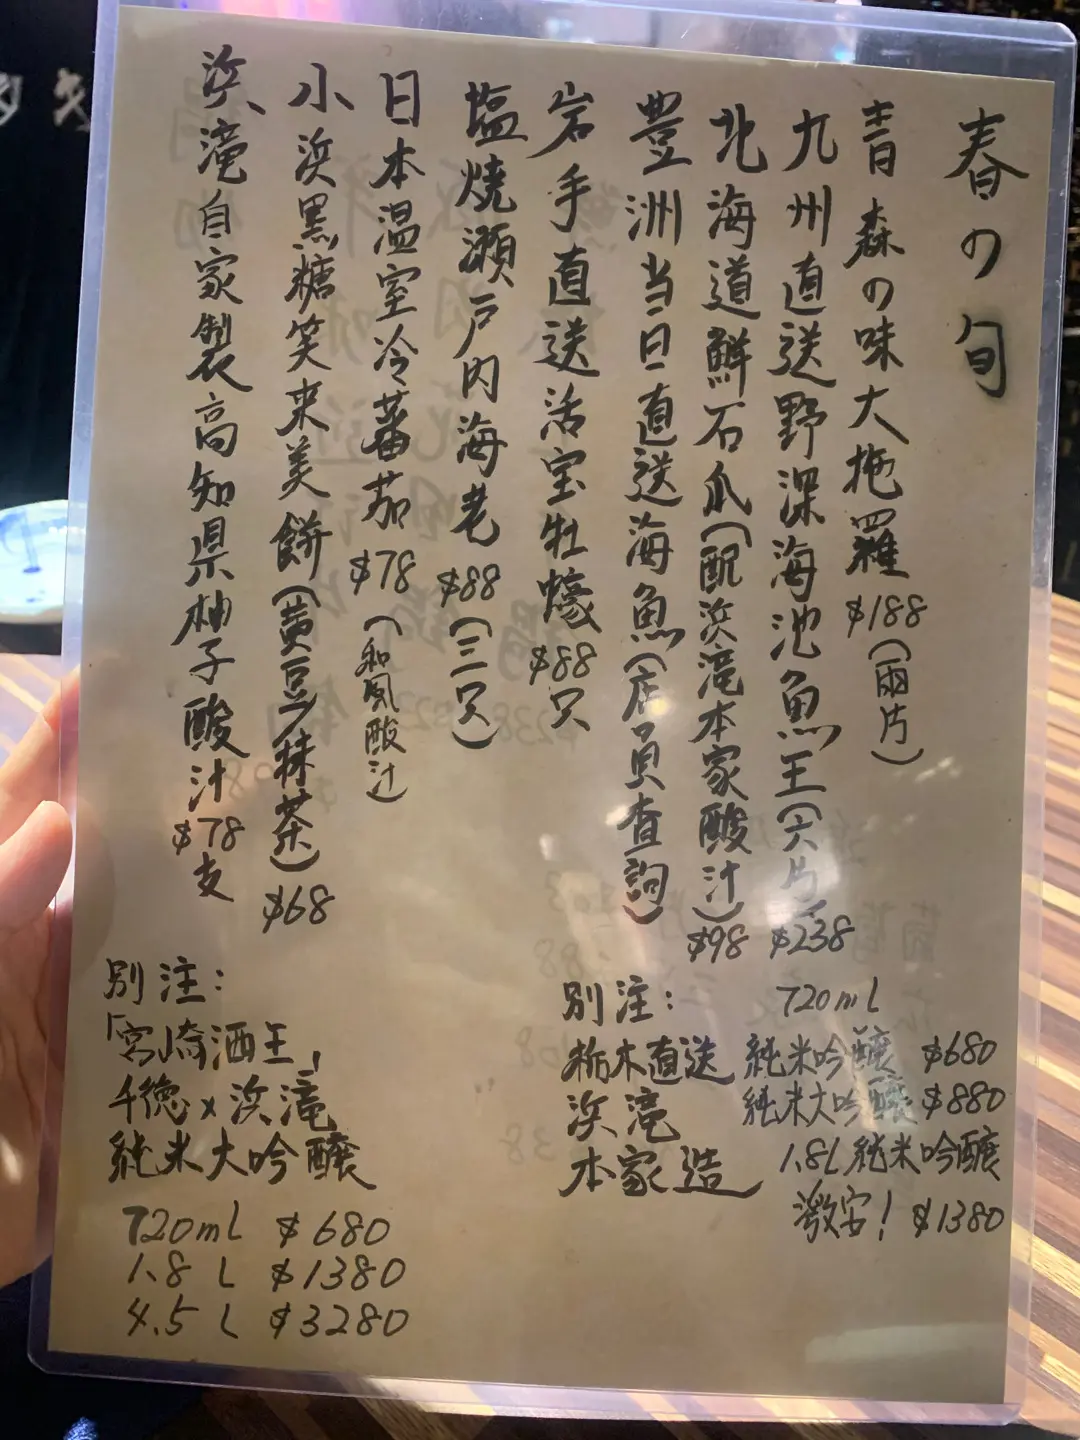 春の旬
青森の味大拖羅 $188(兩片)
九州直送野深海池魚王(六片) $238
北海道鮮石爪(配浜滝本家酸汁) $98
豊洲当日直送海魚(店員查詢)
岩手直送活宝牡蠔 $88只
塩燒瀨戸内海老 $88(三只)
日本温室冷蕃茄 $78(和風酸汁)
小浜黒糖笑来美餅(黄豆/抹茶) $68
浜滝自家製高知県柚子酸汁 $78支
別注: 720mL
栃木直送 純米吟釀 $680
浜滝 純米大吟釀 $880
本家造 1.8L純米吟釀
激安! $1380
別注:
「宮崎酒王」
千徳x浜滝
純米大吟釀
720mL $680
1.8L $1380
4.5L $3280